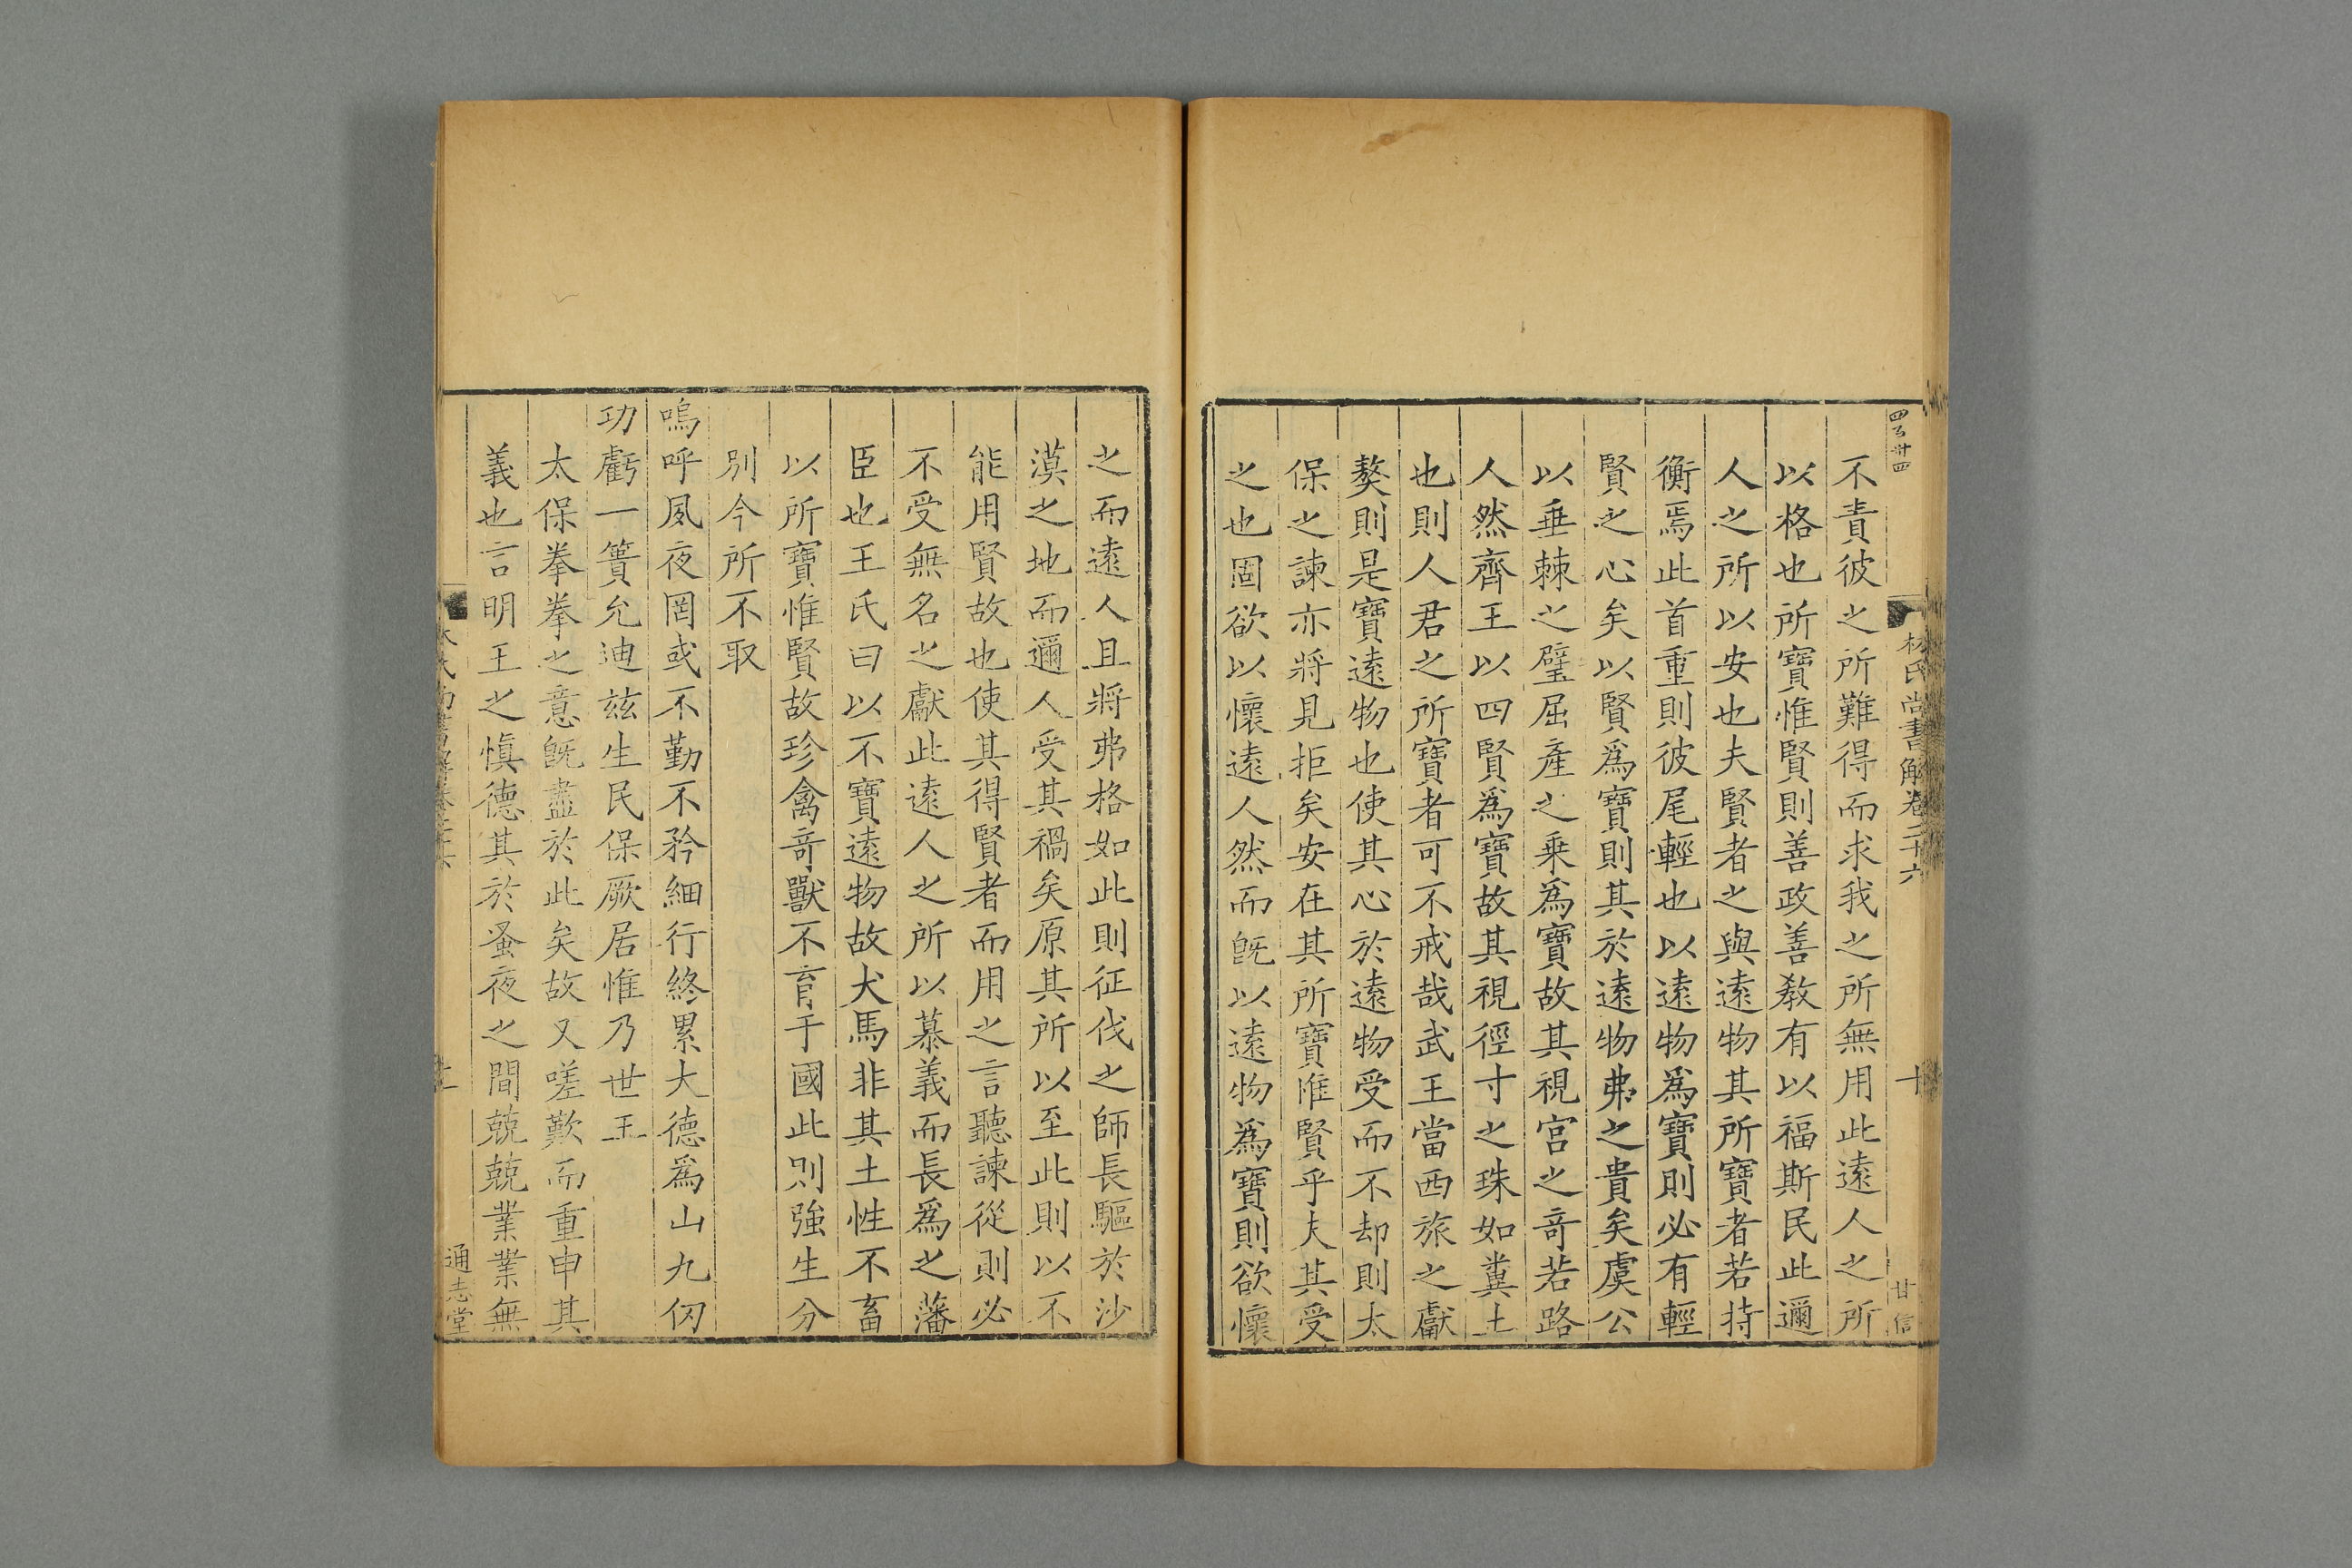 四百卅四
林氏尚書解卷二十六
十
甘信
不責彼之所難得而求我之所無用此遠人之所
以格也所寶惟賢則善政善教有以福斯民此邇
人之所以安也夫賢者之與遠物其所寶者若持
衡焉此首重則彼尾輕也以遠物為寶則必有輕
賢之心矣以賢為寶則其於遠物弗之貴矣虞公
以垂棘之璧屈產之乗為寶故其視宮之竒若路
人然齊王以四賢為寶故其視徑寸之珠如糞土
也則人君之所寶者可不戒哉武王當西旅之獻
獒則是寶遠物也使其心於遠物受而不却則太
保之諫亦將見拒矣安在其所寶惟賢乎夫其受
之也固欲以懷遠人然而旣以遠物為寶則欲懷
之而遠人且將弗格如此則征伐之師長驅於沙
漠之地而邇人受其禍矣原其所以至此則以不
能用賢故也使其得賢者而用之言聽諫從則必
不受無名之獻此遠人之所以慕義而長為之藩
臣也王氏曰以不寶遠物故犬馬非其土性不畜
以所寶惟賢故珍禽竒獸不育于國此則強生分
別今所不取
嗚呼夙夜罔或不勤不矜細行終累大德為山九仞
功虧一簣允迪茲生民保厥居惟乃世王
太保拳拳之意旣盡於此矣故又嗟歎而重申其
義也言明王之愼德其於蚤夜之間兢兢業業無
通志堂